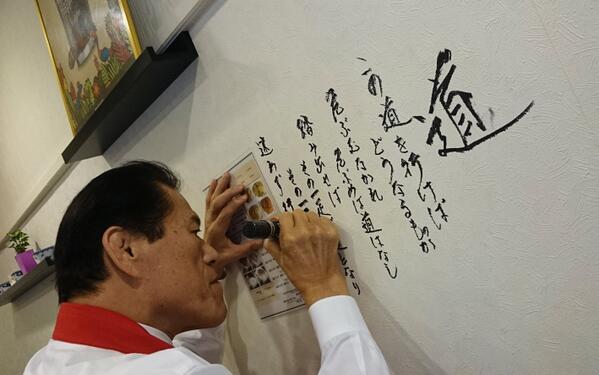 道
この道を行けば
どうなるものか
危ぶむなかれ
危ぶめば道はなし
踏み出せば
その一足 となり
その
迷わず